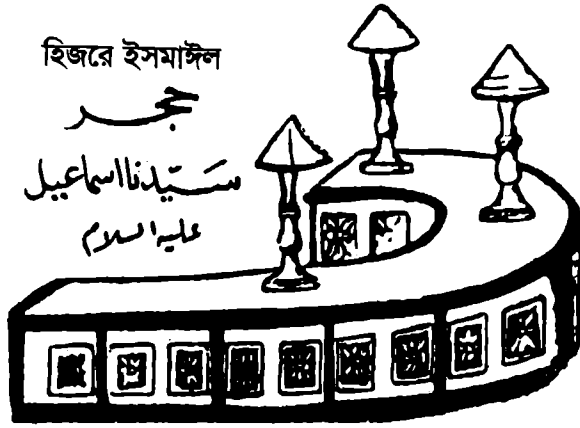 হিজরে ইসমাঈল
حجر
سَيّدنا اسماعيل
عليه السلام